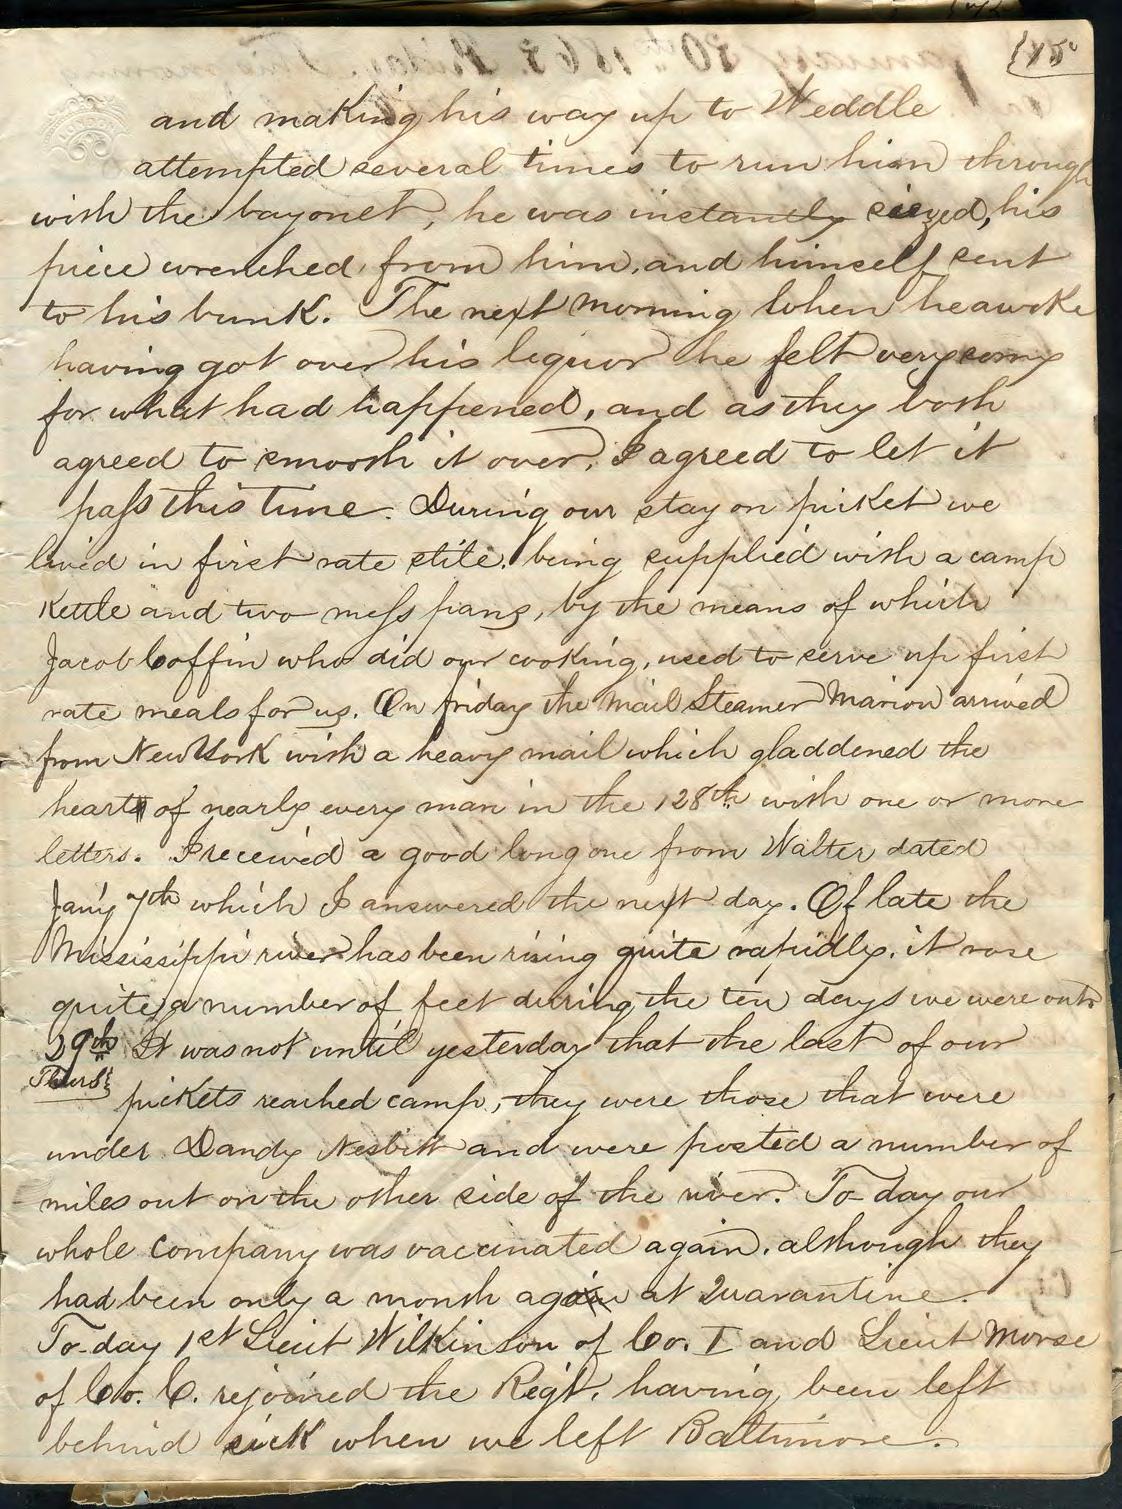 175
and making his way up to Weddle
attempted several times to run him through
with the bayonet, he was instantly siezed, his
piece wrenched from him, and himself sent
to his bunk. The next morning when he awoke
having got over his liquor he felt very sorry
for what had happened, and as they both
agreed to smooth it over, I agreed to let it
pass this time. During our stay on picket we
lived in first rate stile, being supplied with a camp
Kettle and two mess pans, by the means of which
Jacob Coffin who did our cooking, used to serve up first
rate meals for us. On friday the Mail Steamer Marion arrived
from New York with a heavy mail which gladdened the
hearts of nearly every man in the 128th with one or more
letters. I received a good long one from Walter dated
Jan'y 7th which I answered the next day. Of late the
Mississippi river has been rising quite rapidly, it rose
quite a number of feet during the ten days we were out.
29th It was not until yesterday that the last of our
Thurs
pickets reached camp, they were those that were
under Dandy Nesbitt and were posted a number of
miles out on the other side of the river. To day our
whole company was vaccinated again, although they
had been only a month ago at Quarantine.
To-day 1st Lieut Wilkinson of Co. I and Lieut Morse
of Co. C. rejoined the Regt. having been left
behind sick when we left Baltimore.